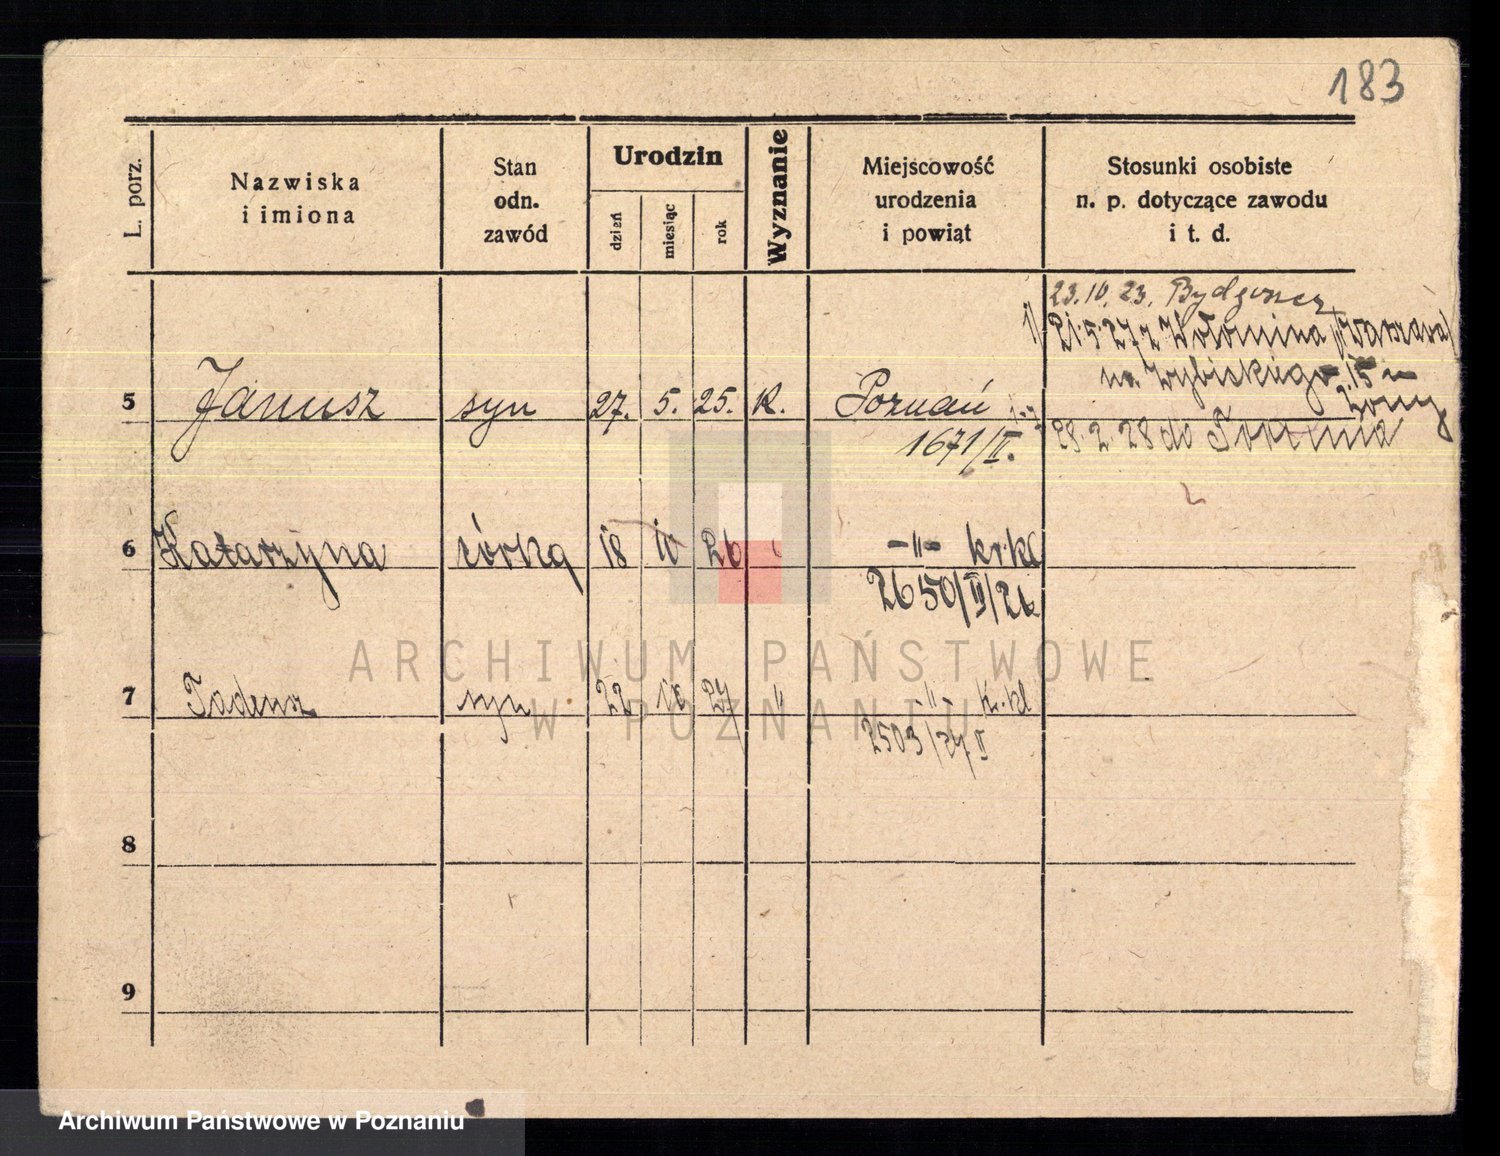 183
L. porz.
Nazwiska
i imiona
Stan
odn.
zawód
Urodzin
dzień
miesiąc
rok
Wyznanie
Miejscowość
urodzenia
i powiąt
Stosunki osobiste
n. p. dotyczące zawodu
i t. d.
23.10.23. Bydgoszcz
1) 21.5.27 z Wołomina (Warszawa)
na
5 Janusz syn 27. 5. 25. K. Poznań
1671/II.
28.2.28 do
6 Katarzyna córka 18 10 26 -"- kr.kl
2650/II/26
7 Tadeusz syn 22 10 27 " -"- k.kl
2503/27 II
8
9
ARCHIWUM PAŃSTWOWE
W POZNANIU
Archiwum Państwowe w Poznaniu